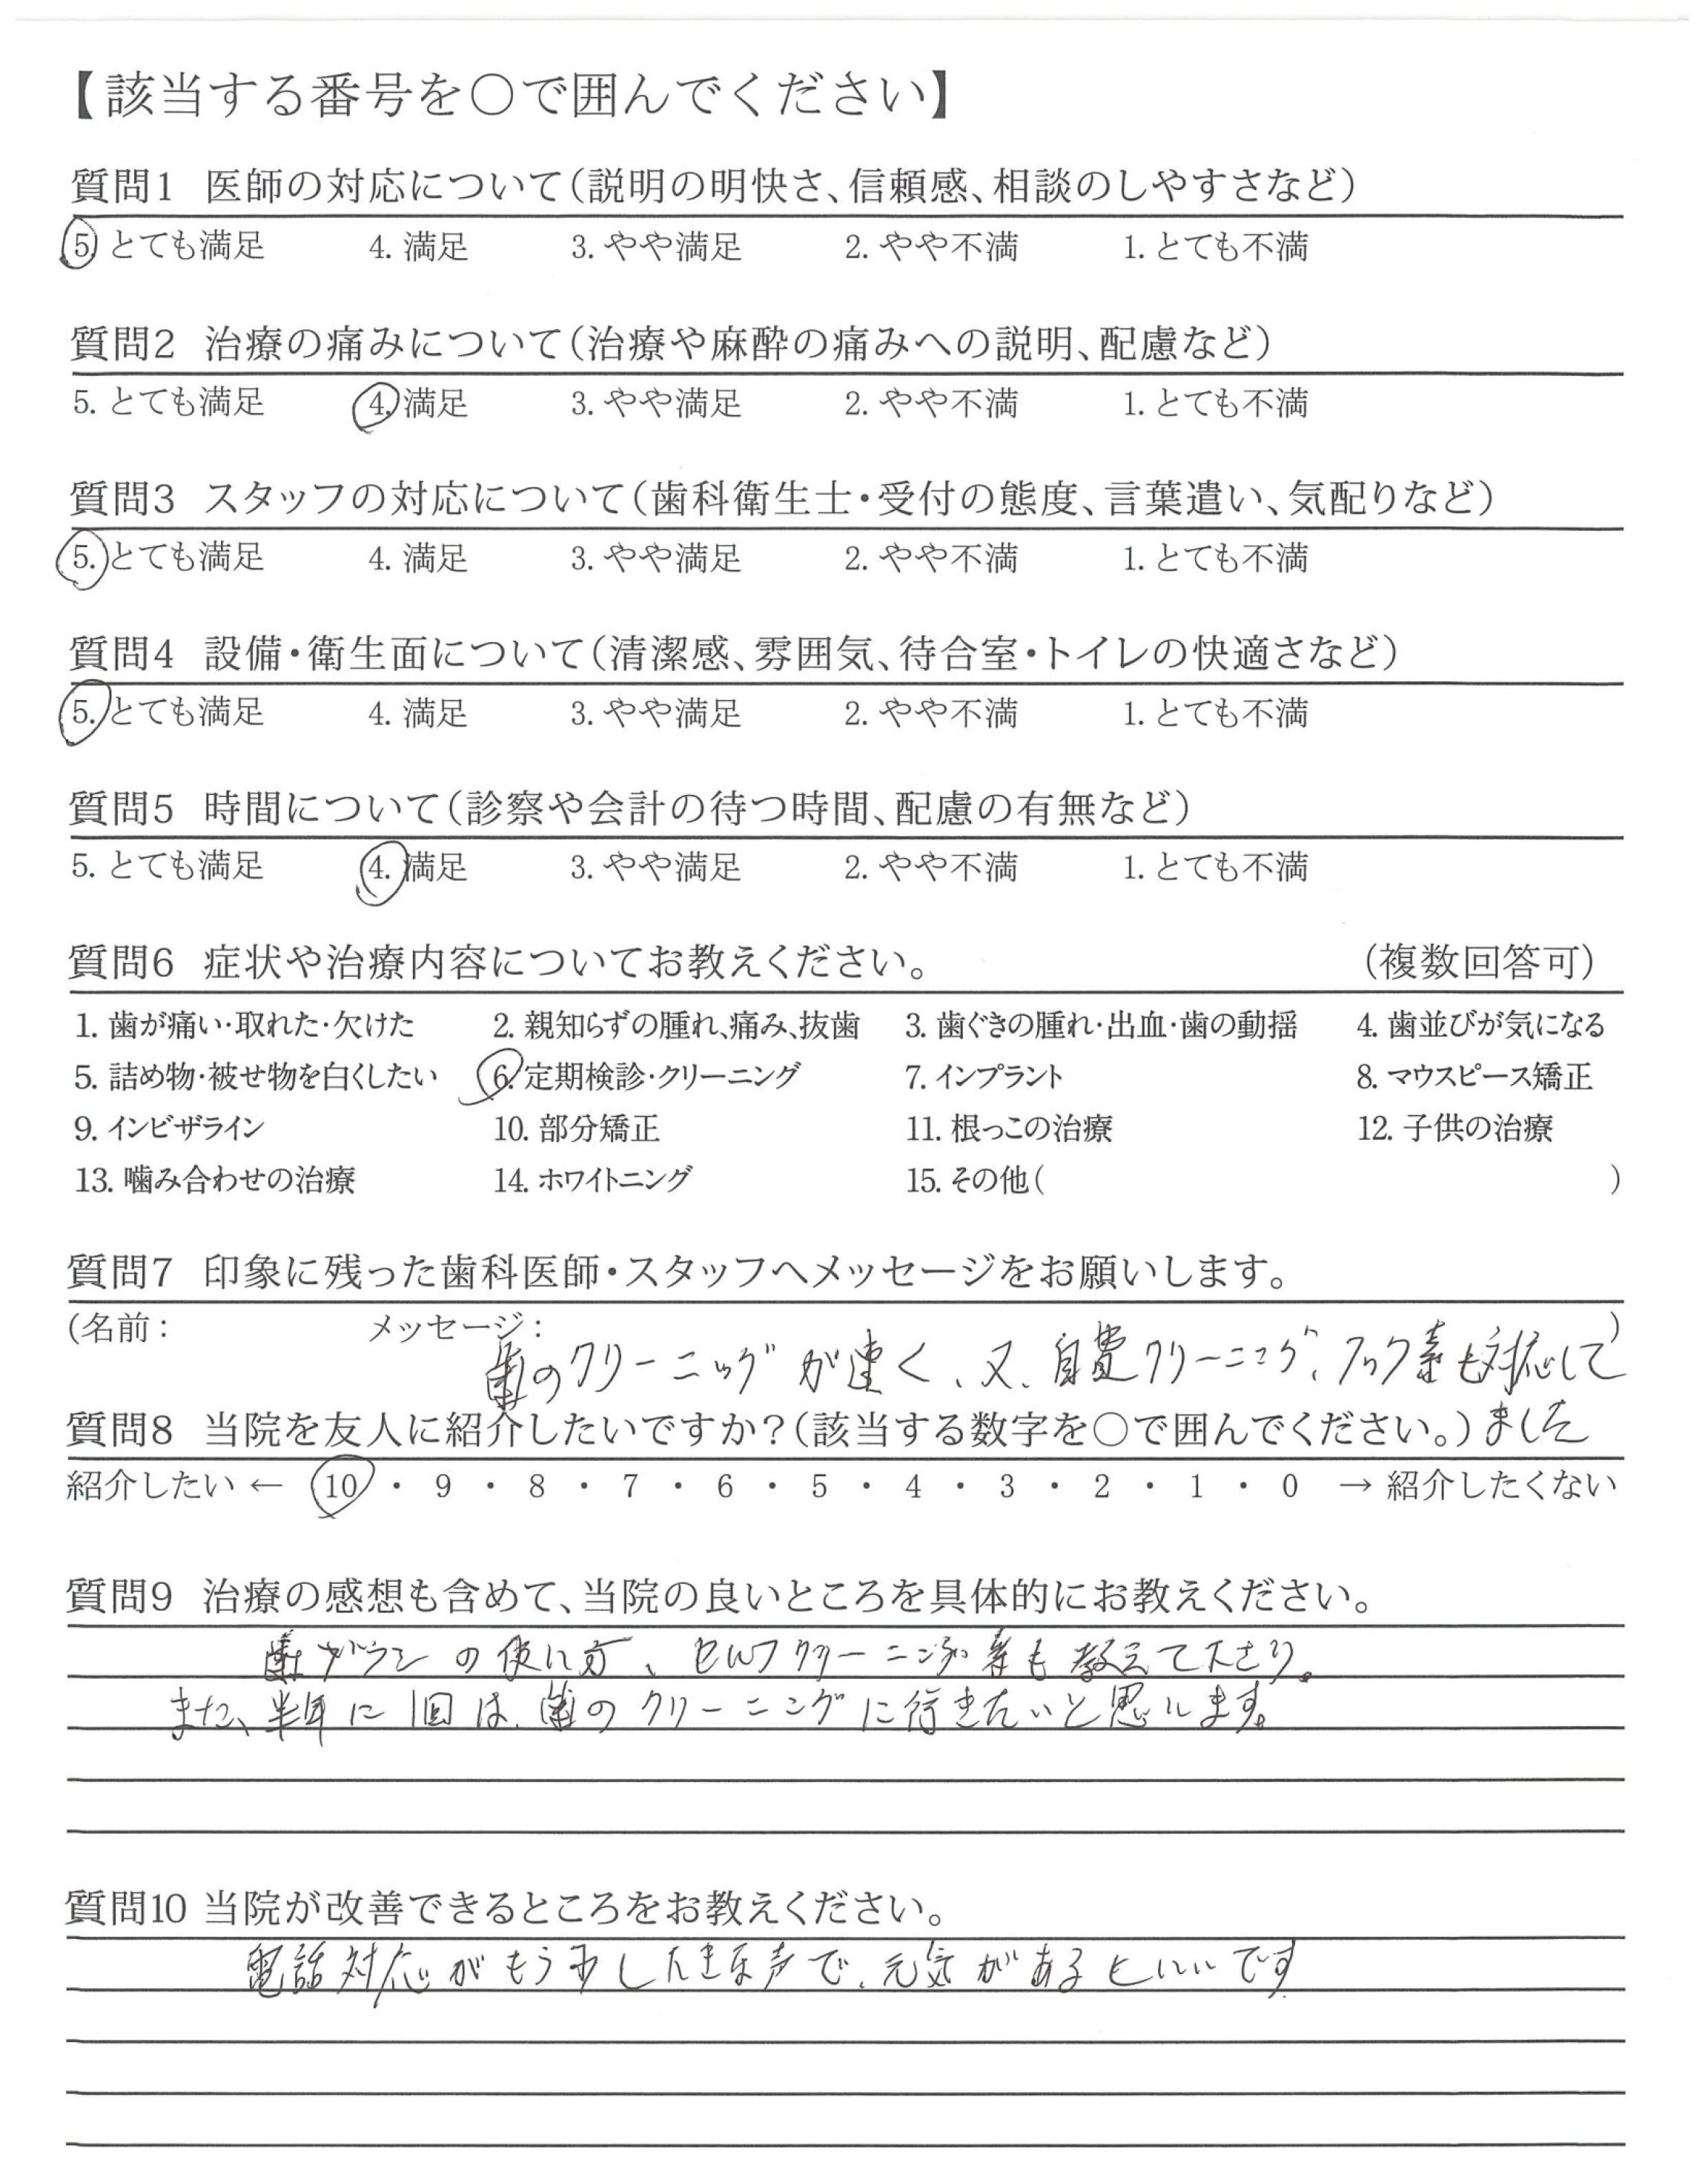 【該当する番号を○で囲んでください】
質問1 医師の対応について(説明の明快さ、信頼感、相談のしやすさなど)
5. とても満足 4. 満足 3. やや満足 2. やや不満 1. とても不満
質問2 治療の痛みについて(治療や麻酔の痛みへの説明、配慮など)
5. とても満足 4. 満足 3. やや満足 2. やや不満 1. とても不満
質問3 スタッフの対応について(歯科衛生士・受付の態度、言葉遣い、気配りなど)
5. とても満足 4. 満足 3. やや満足 2. やや不満 1. とても不満
質問4 設備・衛生面について(清潔感、雰囲気、待合室・トイレの快適さなど)
5. とても満足 4. 満足 3. やや満足 2. やや不満 1. とても不満
質問5 時間について(診察や会計の待つ時間、配慮の有無など)
5. とても満足 4. 満足 3. やや満足 2. やや不満 1. とても不満
質問6 症状や治療内容についてお教えください。 (複数回答可)
1. 歯が痛い・取れた・欠けた 2. 親知らずの腫れ、痛み、抜歯 3. 歯ぐきの腫れ・出血・歯の動揺 4. 歯並びが気になる
5. 詰め物・被せ物を白くしたい 6. 定期検診・クリーニング 7. インプラント 8. マウスピース矯正
9. インビザライン 10. 部分矯正 11. 根っこの治療 12. 子供の治療
13. 噛み合わせの治療 14. ホワイトニング 15. その他( )
質問7 印象に残った歯科医師・スタッフへメッセージをお願いします。
(名前: メッセージ: )
歯のクリーニングが速く、又、自費クリーニング、フッ素も対応して
ました
質問8 当院を友人に紹介したいですか?(該当する数字を○で囲んでください。)
紹介したい ← 10 ・ 9 ・ 8 ・ 7 ・ 6 ・ 5 ・ 4 ・ 3 ・ 2 ・ 1 ・ 0 → 紹介したくない
質問9 治療の感想も含めて、当院の良いところを具体的にお教えください。
歯ブラシの使い方、セルフクリーニング等も教えて下さり。
また、半年に1回は、歯のクリーニングに行きたいと思います。
質問10 当院が改善できるところをお教えください。
電話対応がもう少し大きな声で、元気があるといいです